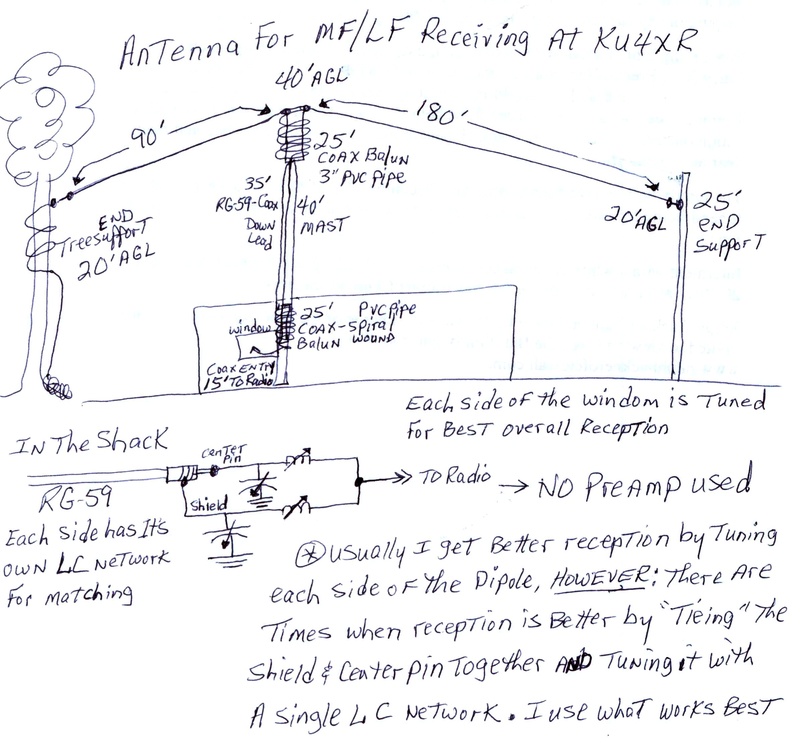 Antenna For MF/LF Receiving At KU4XR
40' AGL
90'
180'
25'
Coax Balun
3" PVC Pipe
35'
RG-59-Coax
Down
Lead
40'
MAST
END
Treesupport
20' AGL
20' AGL
25'
END
Support
25' PVC Pipe
Coax-Spiral
Balun Wound
Window
Coax Entry
15' To Radio
Each side of the windom is Tuned
For Best overall Reception
In The Shack
center
Pin
Shield
RG-59
To Radio → No Preamp used
Each side has It's
own LC Network
For matching
* Usually I get Better reception by Tuning
each side of the Dipole, HOWEVER: There Are
Times when reception is Better by "Tieing" The
Shield & Center pin Together AND Tuning it with
A single LC Network. I use what works Best